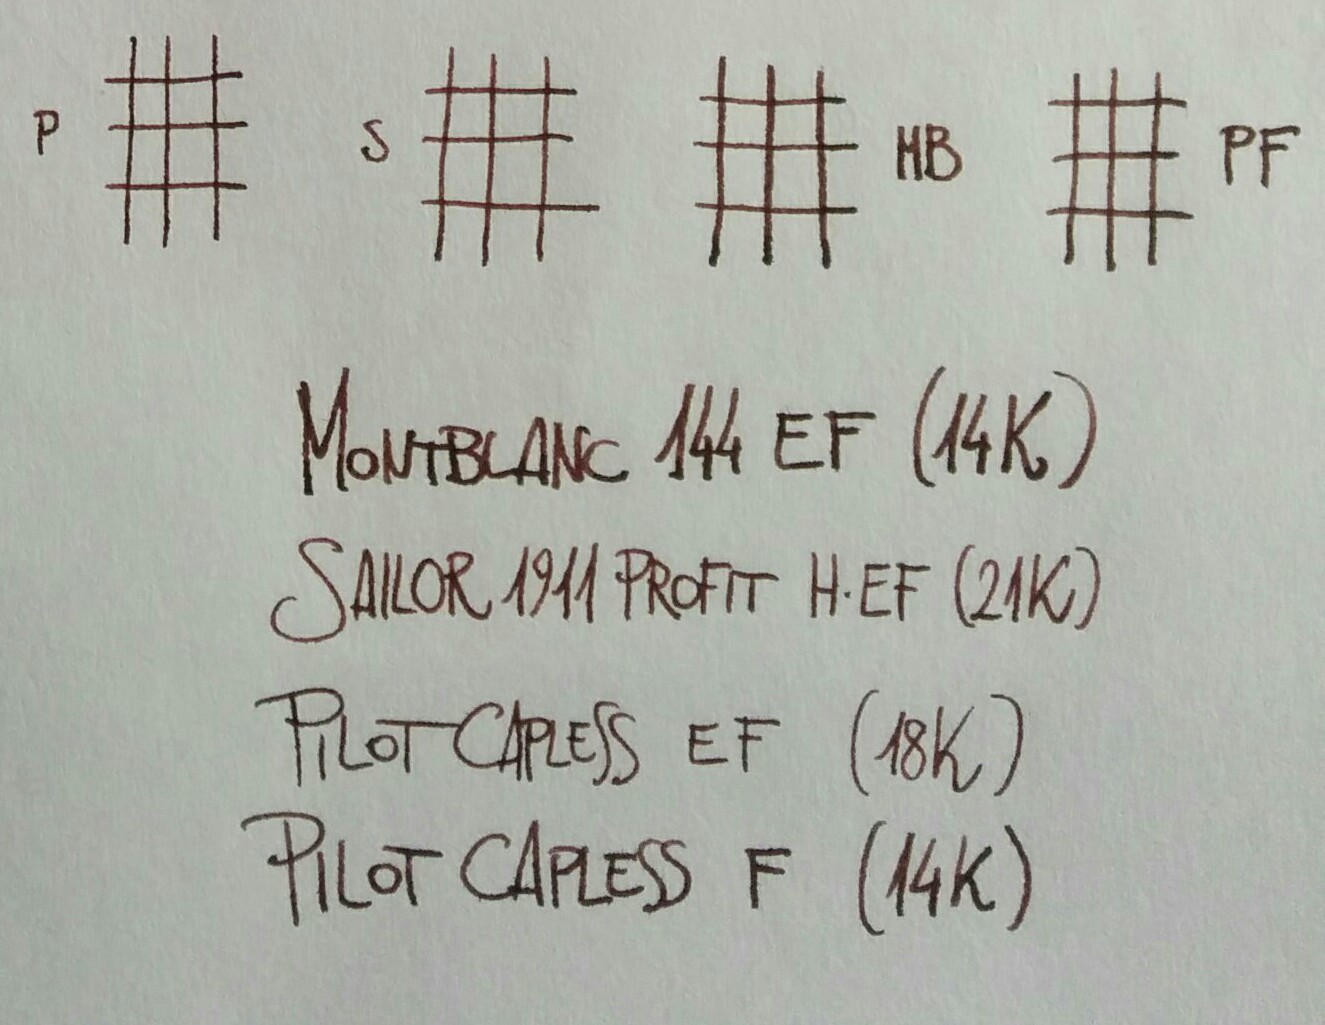 P S MB PF
MONTBLANC 144 EF (14K)
SAILOR 1911 PROFIT H·EF (21K)
PILOT CAPLESS EF (18K)
PILOT CAPLESS F (14K)